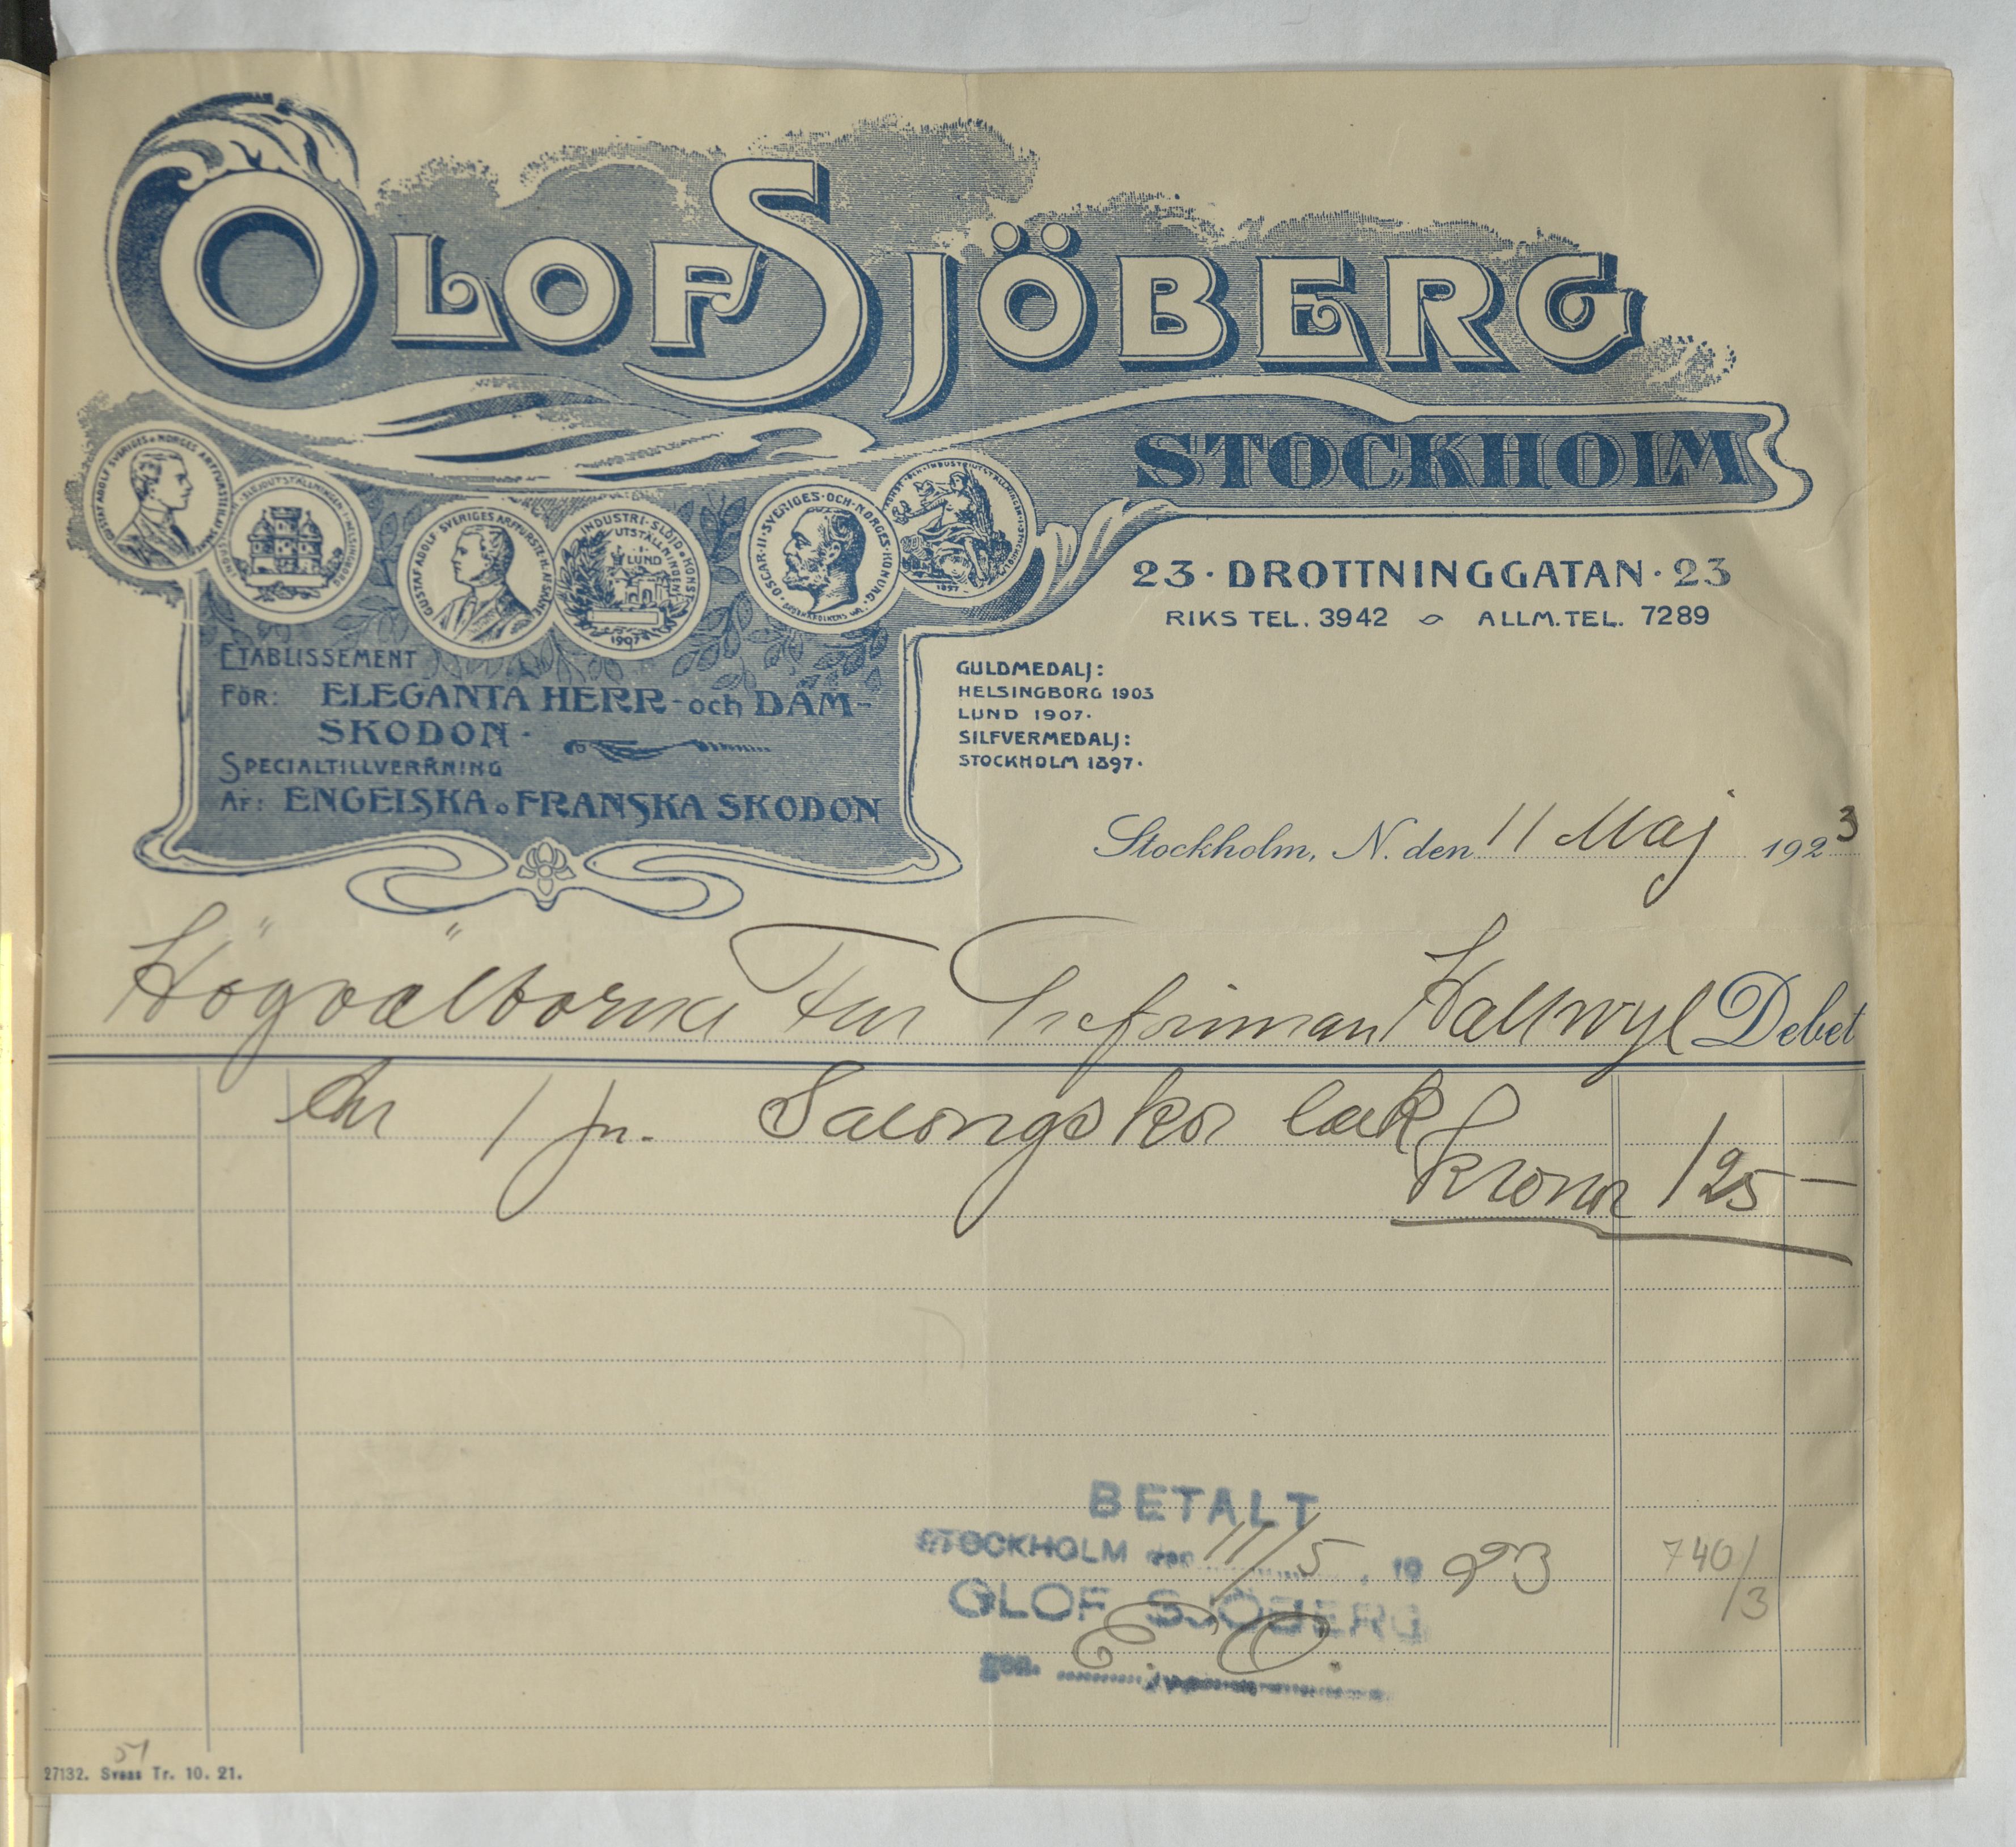 OLOF SJÖBERG
STOCKHOLM
23 · DROTTNINGGATAN · 23
RIKS TEL. 3942 ALLM. TEL. 7289
GUSTAF ADOLF SVERIGES o NORGES ARFFURSTE
SLÖJDUTSTÄLLNINGEN I HELSINGBORG
GUSTAF ADOLF SVERIGES ARFFURSTE
INDUSTRI · SLÖJD o KONST
UTSTÄLLNINGEN
I
LUND
1907
OSCAR · II · SVERIGES · OCH · NORGES · KONUNG ·
1897
ETABLISSEMENT
FÖR: ELEGANTA HERR- och DAM-
SKODON ·
SPECIALTILLVERKNING
AF: ENGELSKA o FRANSKA SKODON
GULDMEDALJ:
HELSINGBORG 1903
LUND 1907 ·
SILFVERMEDALJ:
STOCKHOLM 1897 ·
Stockholm, N. den 11 Maj 1923
Högvälborna Fru Hallwyl Debet
1 pr. Salongskor lack
Kronor 125 —
BETALT
STOCKHOLM den 11/5, 1923
OLOF SJÖBERG
E. O.
740/3
27132. Svens Tr. 10. 21.